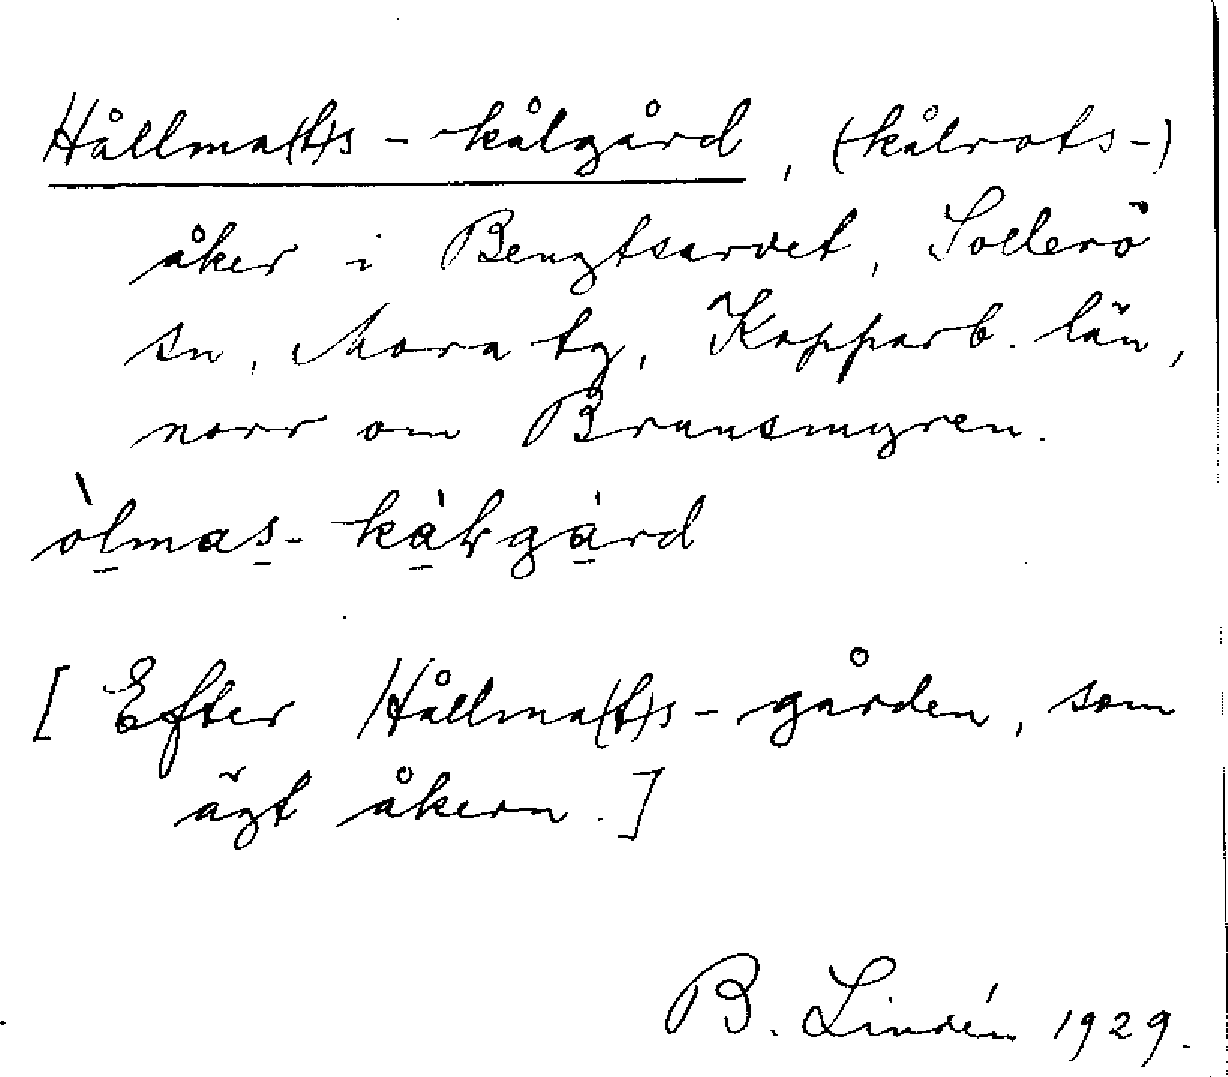 Hållma(t)s-kålgård, (kålrots-)
åker i Bengtsarvet, Sollerö
sn, Mora tg, Kopparb. län,
norr om Brunsmyren.
òlmas-kàlgàrd
[Efter Hållma(t)s-gården, som
ägt åkern.]
B. Lindén 1929.